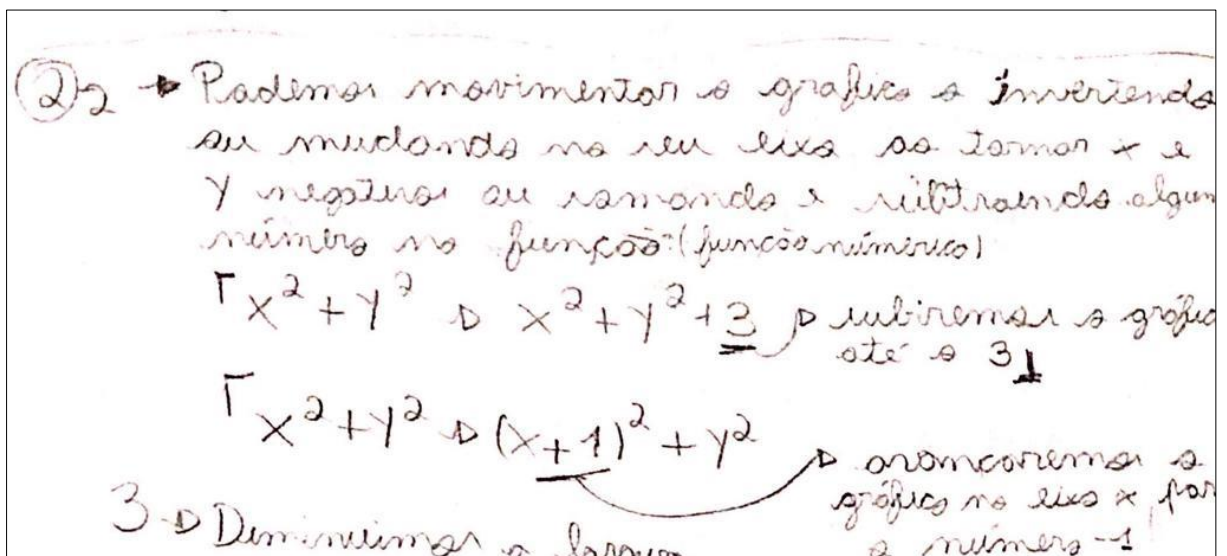 2)2 → Podemos movimentar o grafico o invertendo
ou mudando no seu eixo ao tornar x e
y negativos ou somando e subtraindo algum
número na função (função númerica)
x² + y² ▷ x² + y² + 3 ▷ subiremos o gráfic
até o 3
x² + y² ▷ (x + 1)² + y² ▷
avançaremos o
gráfico no eixo x, par
3 ▷ Diminuimos a
o número -1